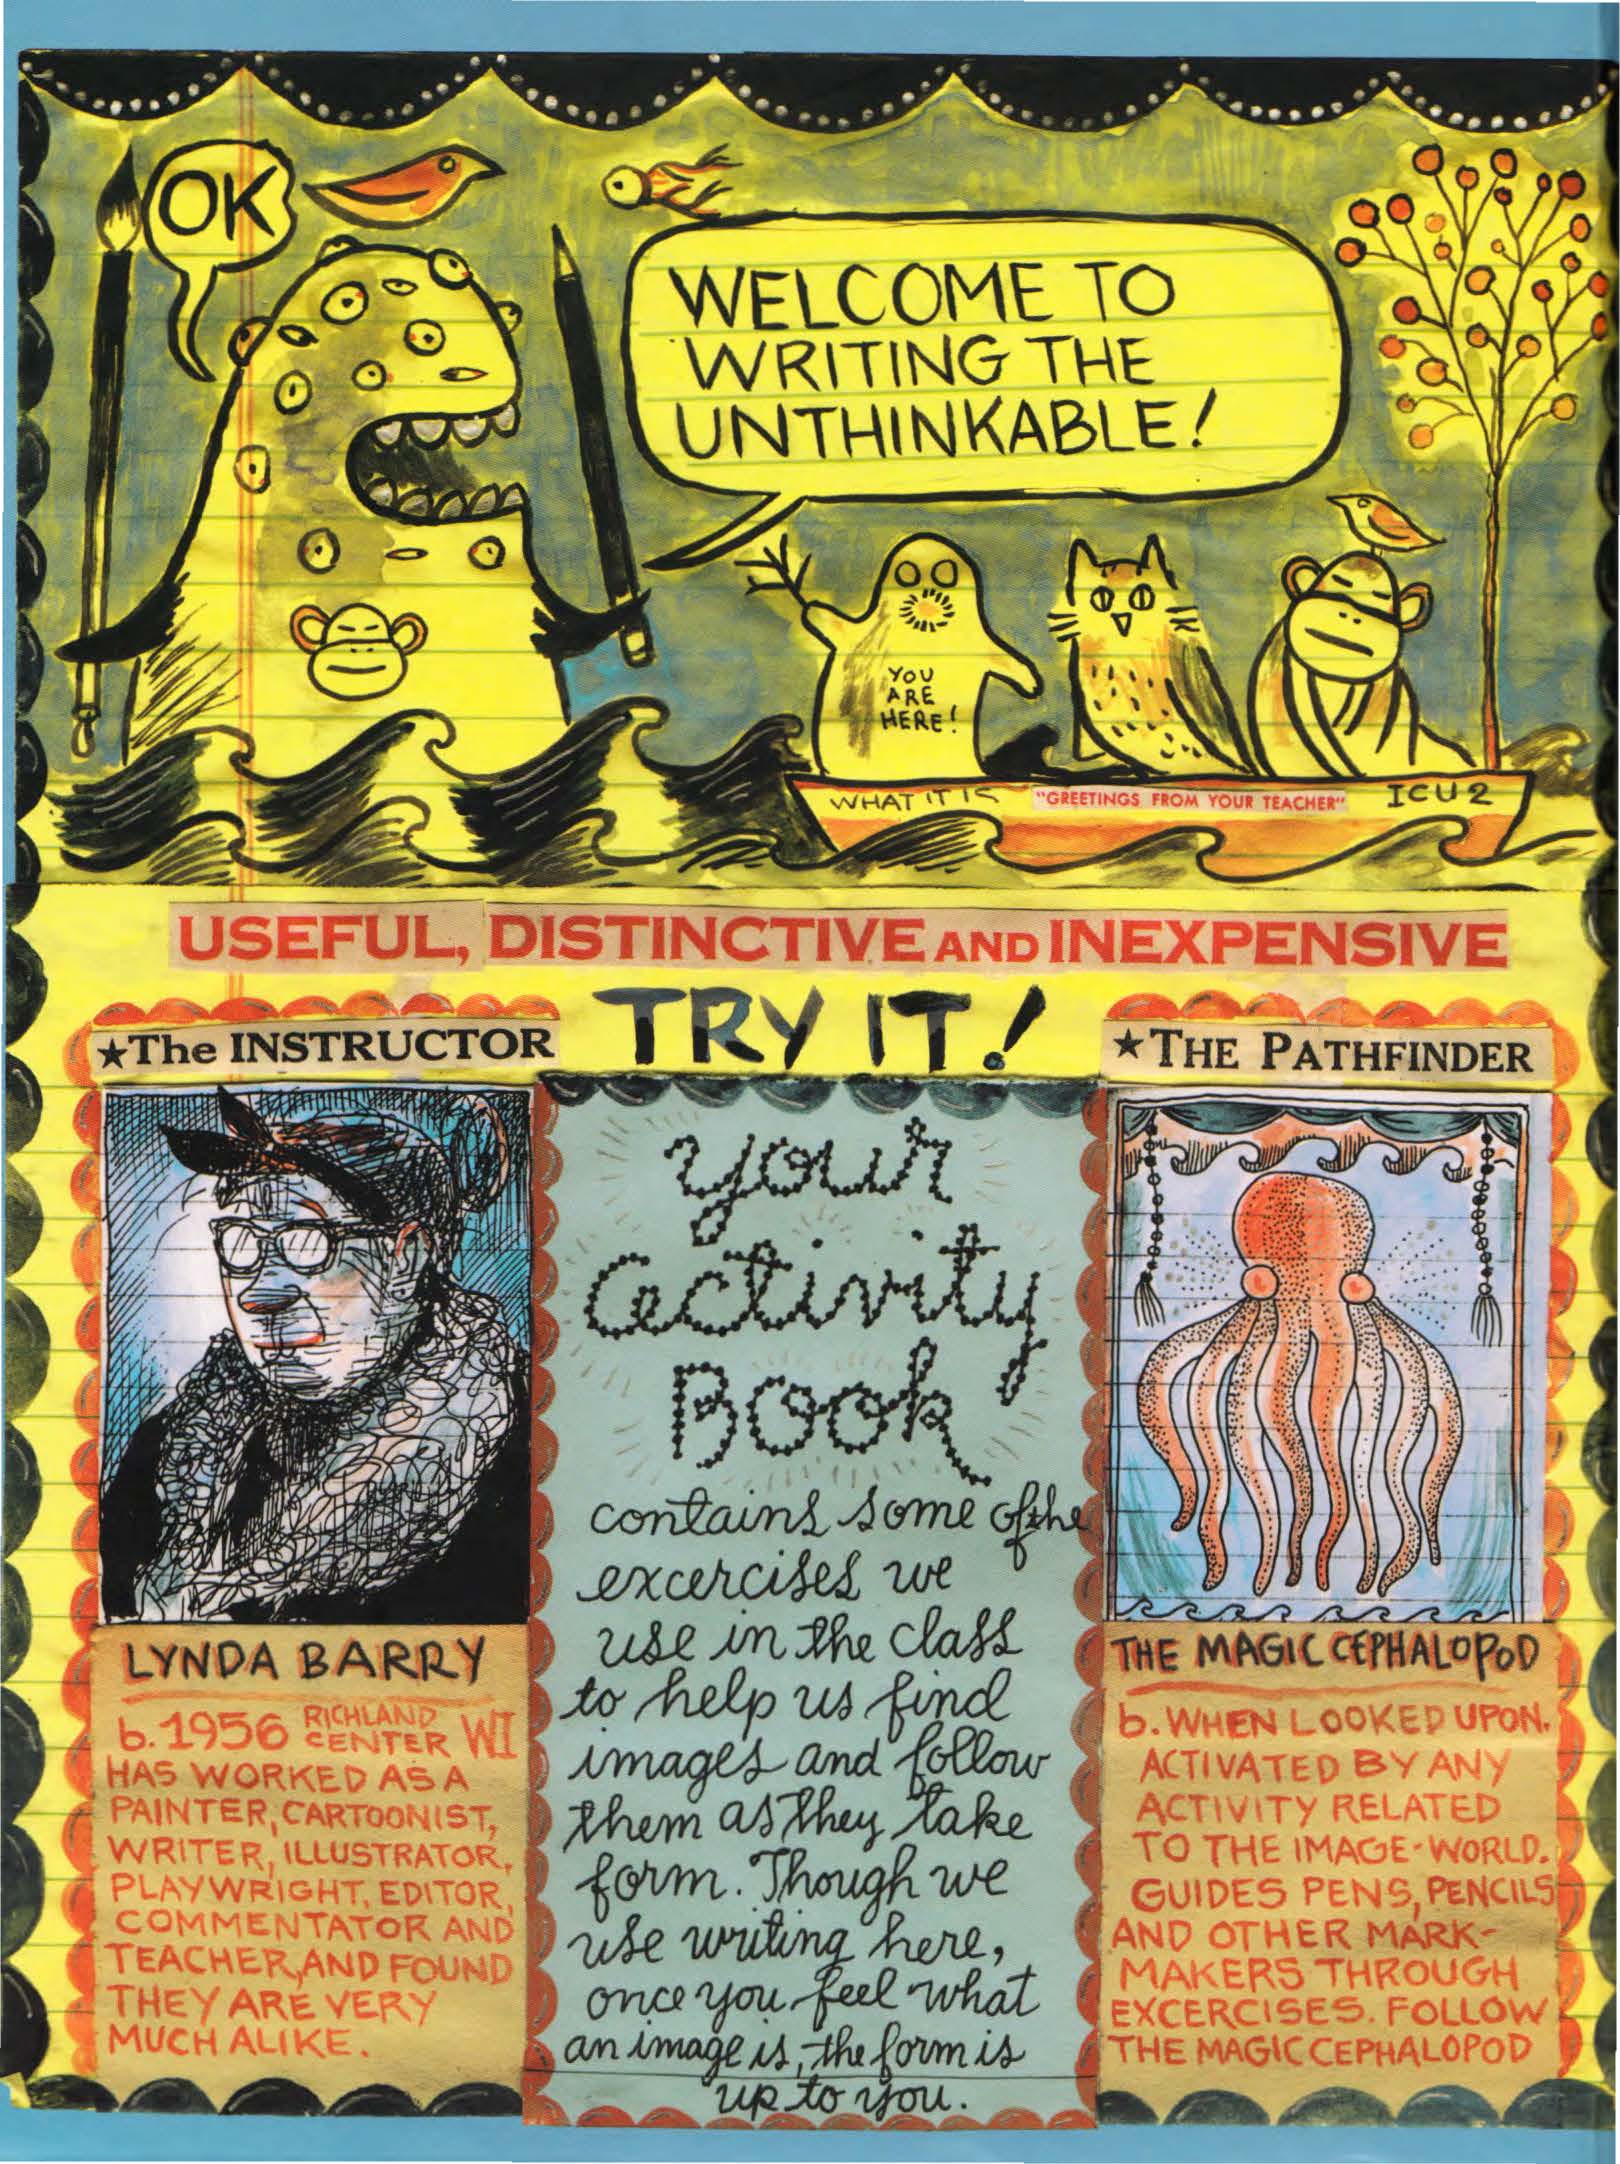 OK
WELCOME TO
WRITING THE
UNTHINKABLE!
YOU
ARE
HERE!
WHAT IT IS
"GREETINGS FROM YOUR TEACHER"
ICU2
USEFUL, DISTINCTIVE AND INEXPENSIVE
TRY IT!
★The INSTRUCTOR
LYNDA BARRY
b. 1956 RICHLAND CENTER WI
HAS WORKED AS A
PAINTER, CARTOONIST,
WRITER, ILLUSTRATOR,
PLAYWRIGHT, EDITOR,
COMMENTATOR AND
TEACHER, AND FOUND
THEY ARE VERY
MUCH ALIKE.
your
activity
Book
contains some of the
excercises we
use in the class
to help us find
images and follow
them as they take
form. Though we
use writing here,
once you feel what
an image is, the form is
up to you.
★THE PATHFINDER
THE MAGIC CEPHALOPOD
b. WHEN LOOKED UPON.
ACTIVATED BY ANY
ACTIVITY RELATED
TO THE IMAGE-WORLD.
GUIDES PENS, PENCILS
AND OTHER MARK-
MAKERS THROUGH
EXCERCISES. FOLLOW
THE MAGIC CEPHALOPOD